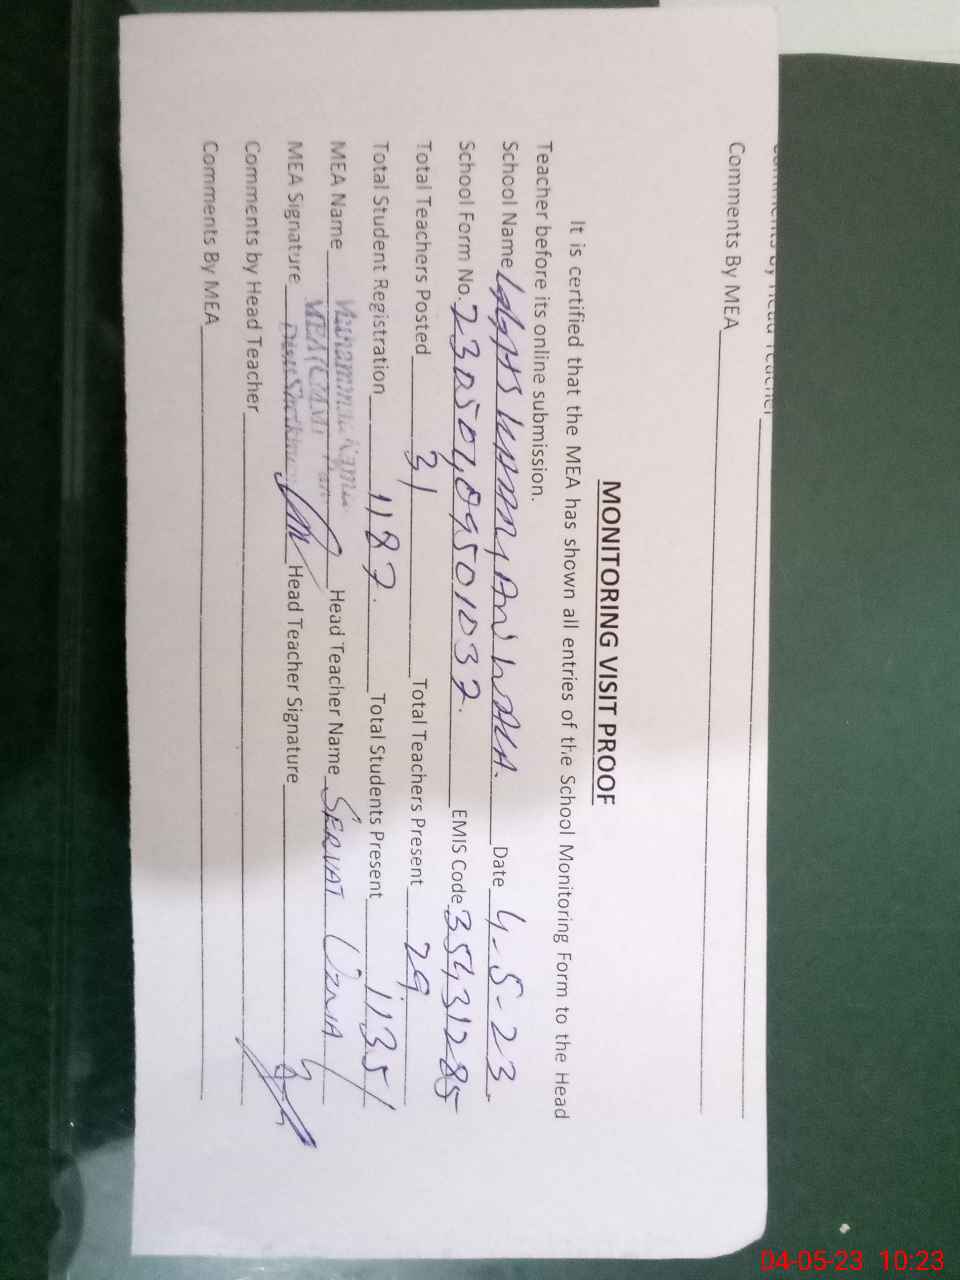 Comments By MEA
MONITORING VISIT PROOF
It is certified that the MEA has shown all entries of the School Monitoring Form to the Head
Teacher before its online submission.
School Name Date 4-5-23
School Form No. 23050409501037. EMIS Code 35431285
Total Teachers Posted 31 Total Teachers Present 29
Total Student Registration 1187. Total Students Present 1135
MEA Name Head Teacher Name SERVAT UZMA
MEA Signature Head Teacher Signature
Comments by Head Teacher
Comments By MEA
04-05-23 10:23